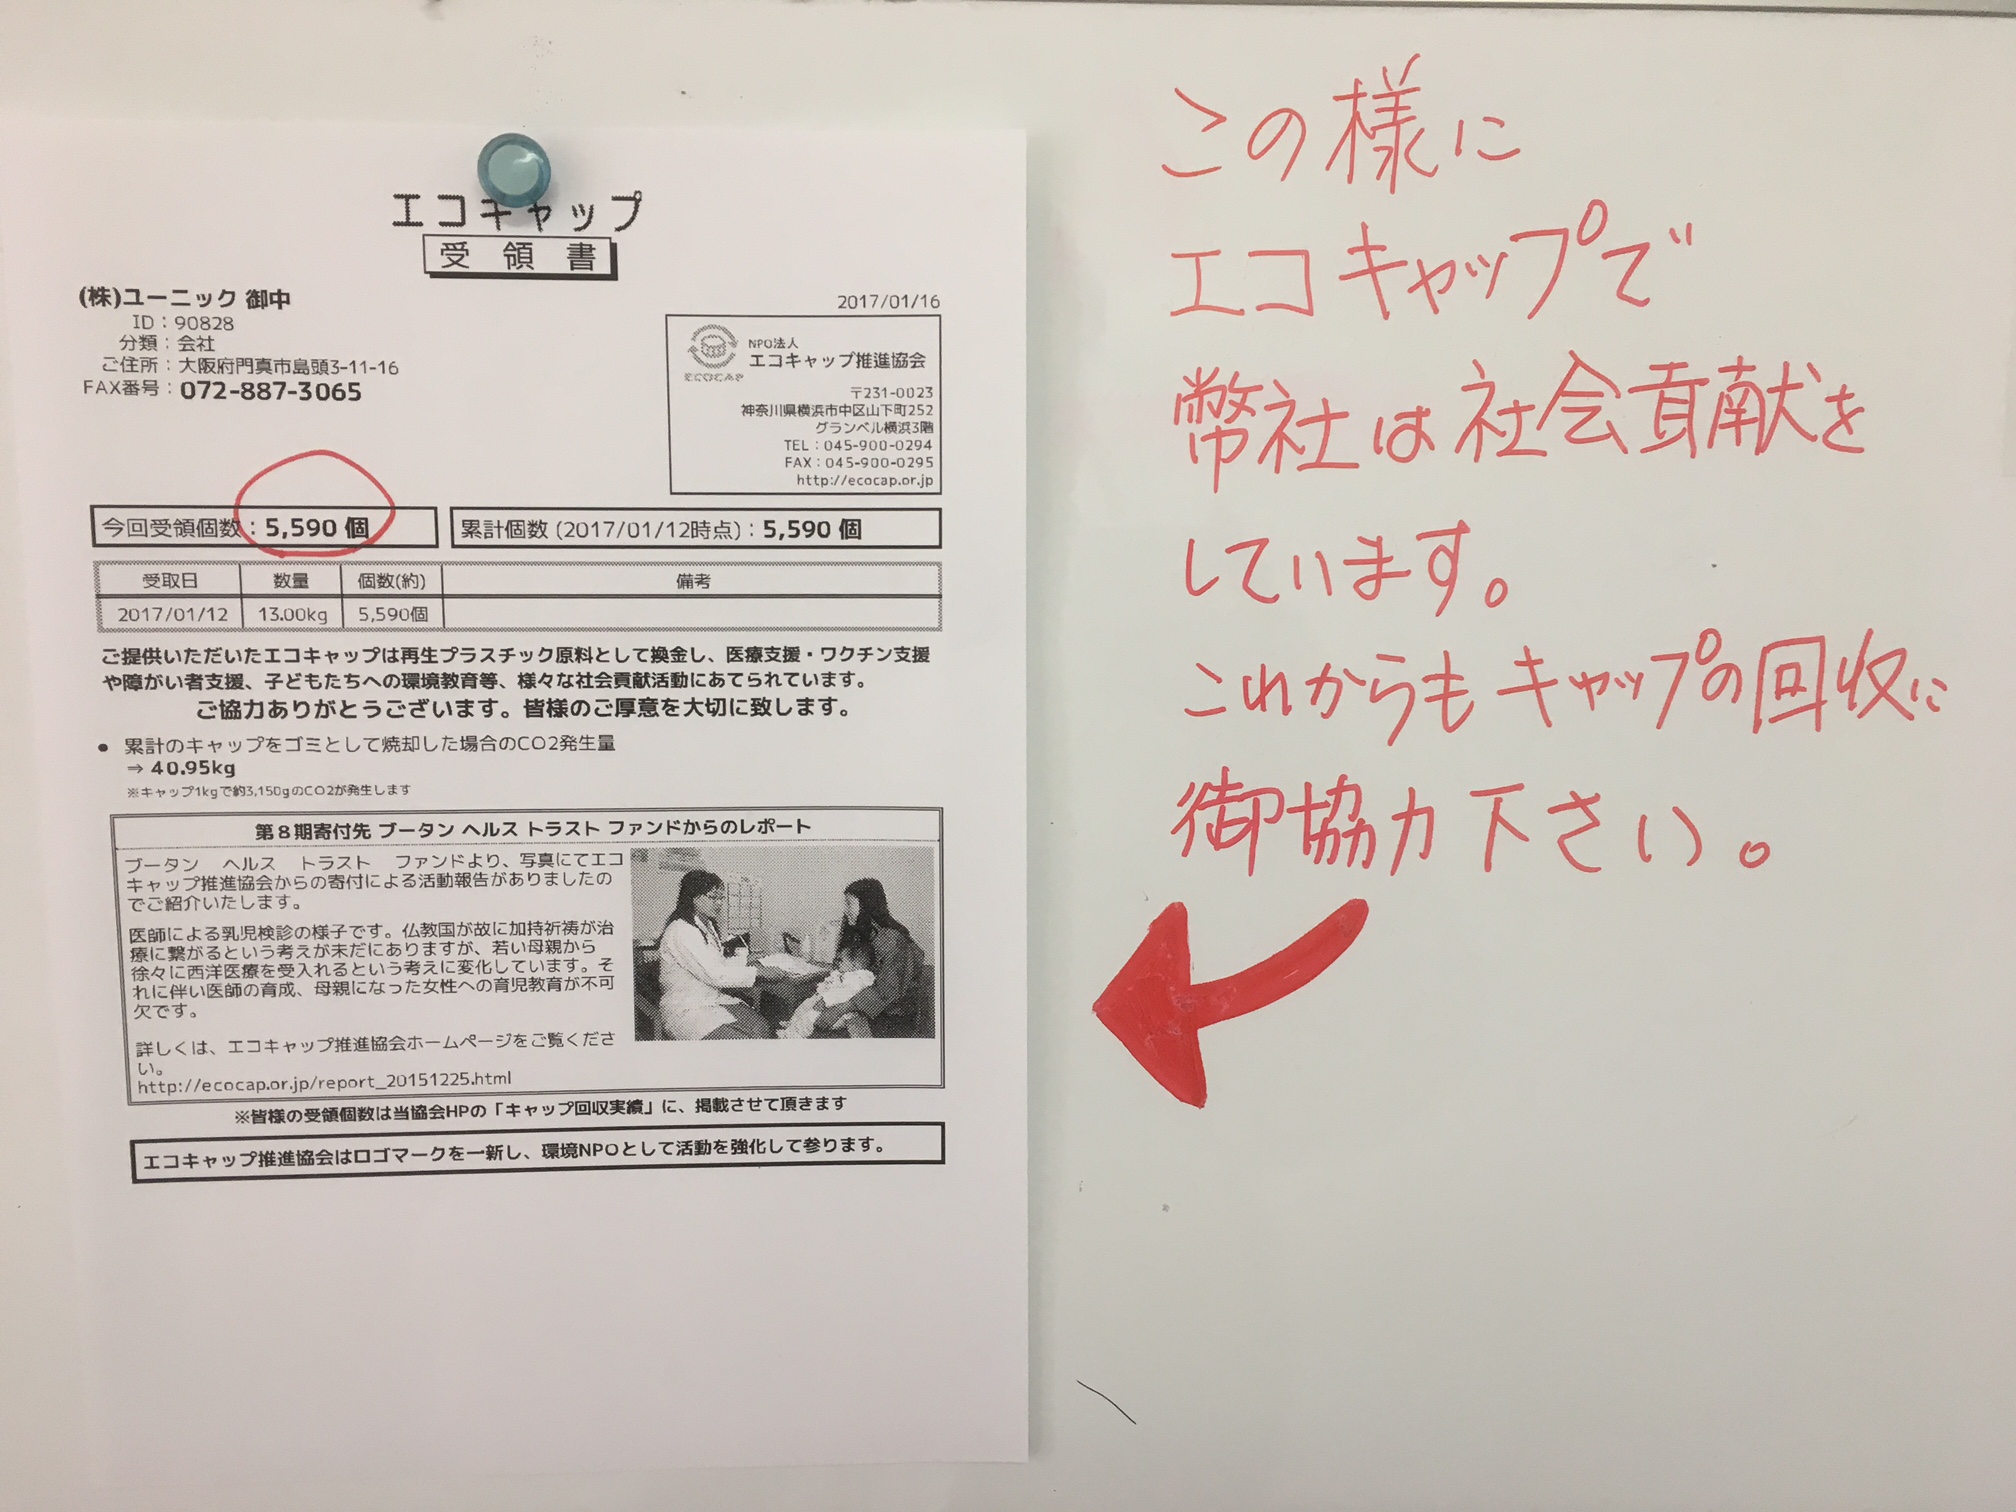 エコキャップ
受領書
(株)ユーニック 御中
ID：90828
分類：会社
ご住所：大阪府門真市島頭3-11-16
FAX番号：072-887-3065
2017/01/16
ECOCAP
NPO法人
エコキャップ推進協会
〒231-0023
神奈川県横浜市中区山下町252
グランベル横浜3階
TEL：045-900-0294
FAX：045-900-0295
http://ecocap.or.jp
今回受領個数：5,590 個
累計個数 (2017/01/12時点)：5,590 個
受取日 数量 個数(約) 備考
2017/01/12 13.00kg 5,590個
ご提供いただいたエコキャップは再生プラスチック原料として換金し、医療支援・ワクチン支援
や障がい者支援、子どもたちへの環境教育等、様々な社会貢献活動にあてられています。
ご協力ありがとうございます。皆様のご厚意を大切に致します。
● 累計のキャップをゴミとして焼却した場合のCO2発生量
⇒ 40.95kg
※キャップ1kgで約3,150gのCO2が発生します
第８期寄付先 ブータン ヘルス トラスト ファンドからのレポート
ブータン ヘルス トラスト ファンドより、写真にてエコ
キャップ推進協会からの寄付による活動報告がありましたの
でご紹介いたします。
医師による乳児検診の様子です。仏教国が故に加持祈祷が治
療に繋がるという考えが未だにありますが、若い母親から
徐々に西洋医療を受入れるという考えに変化しています。そ
れに伴い医師の育成、母親になった女性への育児教育が不可
欠です。
詳しくは、エコキャップ推進協会ホームページをご覧くださ
い。
http://ecocap.or.jp/report_20151225.html
※皆様の受領個数は当協会HPの「キャップ回収実績」に、掲載させて頂きます
エコキャップ推進協会はロゴマークを一新し、環境NPOとして活動を強化して参ります。
この様に
エコキャップで
弊社は社会貢献を
しています。
これからもキャップの回収に
御協力下さい。